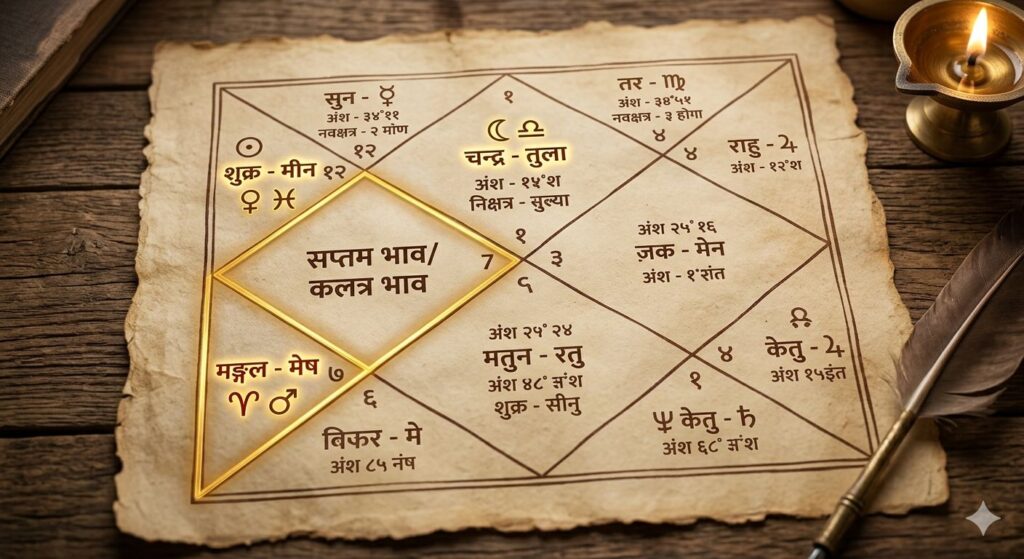 सुन - ☿
अंश - ३४°११
नवक्षत्र - २ मांण
१२
१
☾ ♎
चन्द्र - तुला
अंश - १५°श
निक्षत्र - सुल्या
१
तर - ♍
अंश - ३४°५५
नवक्षत्र - ३ होगा
४
४
राहु - ♃
अंश - १२°श
☉
शुक्र - मीन १२
♀ ♓
सप्तम भाव/
कलत्र भाव
7
३
अंश २५° १६
ज़क - मेन
अंश - १°संत
मङ्गल - मेष ७
♈ ♂
६
बिकर - मे
अंश ८५ नंष
अंश २५° २४
मतुन - रतु
अंश ४८°
शुक्र - सीनु
४
केतु - ♃
अंश १५इंत
१
♆ केतु - ♄
अंश ६८°